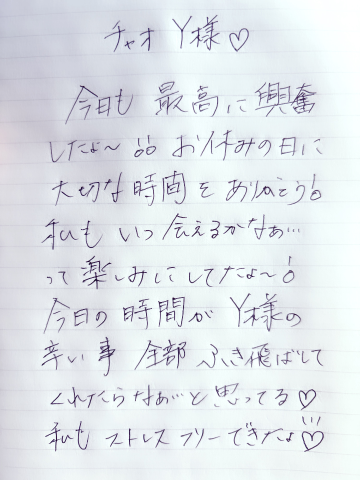 チャオ Y様♡
今日も 最高に興奮
したよ〜!! お休みの日に
大切な時間を ありがとう!
私も いつ会えるかなぁ…
って楽しみにしてたよ〜!
今日の時間が Y様の
辛い事 全部 ふき飛ばして
くれたらなぁ…と思ってる♡
私も ストレスフリーできたよ♡